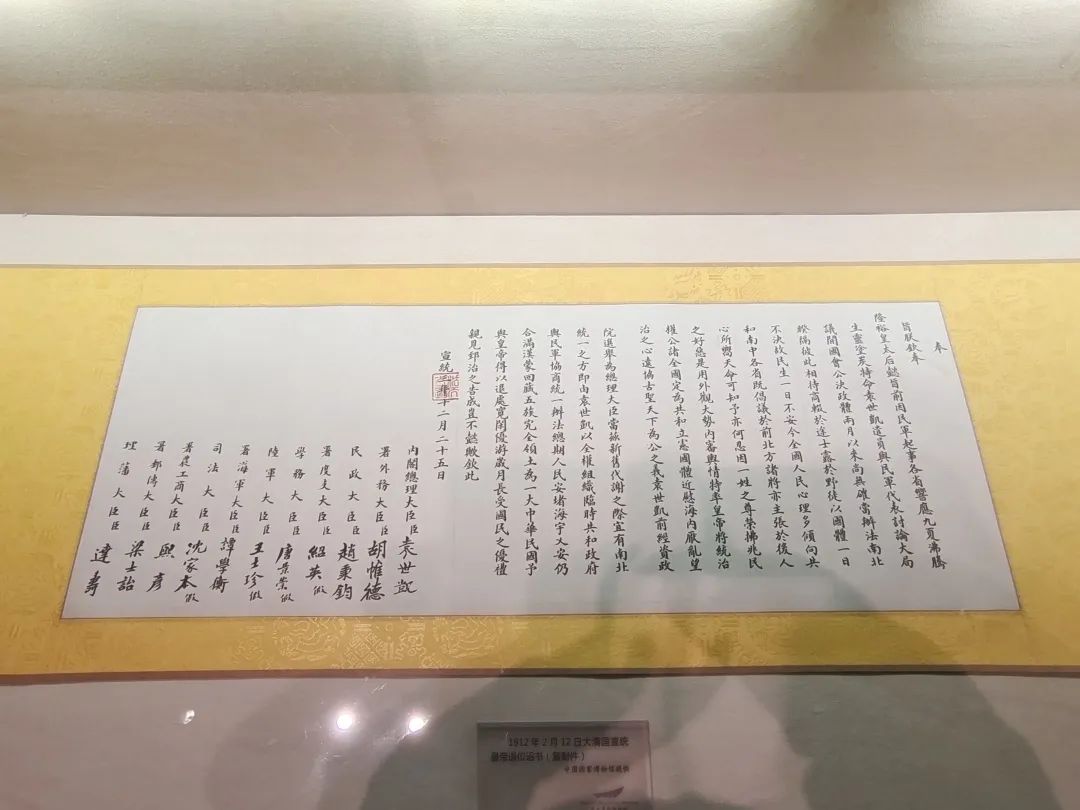 奉
旨朕欽奉
隆裕皇太后懿旨前因民軍起事各省響應九夏沸騰
生靈塗炭特命袁世凱遣員與民軍代表討論大局
議開國會公決政體兩月以來尚無確當辦法南北
睽隔彼此相持商輟於途士露於野徒以國體一日
不決故民生一日不安今全國人民心理多傾向共
和南中各省既倡議於前北方諸將亦主張於後人
心所嚮天命可知予亦何忍因一姓之尊榮拂兆民
之好惡是用外觀大勢內審輿情特率皇帝將統治
權公諸全國定為共和立憲國體近慰海內厭亂望
治之心遠協古聖天下為公之義袁世凱前經資政
院選舉為總理大臣當茲新舊代謝之際宜有南北
統一之方即由袁世凱以全權組織臨時共和政府
與民軍協商統一辦法總期人民安堵海宇乂安仍
合滿漢蒙回藏五族完全領土為一大中華民國予
與皇帝得以退處寬閒優游歲月長受國民之優禮
親見郅治之告成豈不懿歟欽此
宣統三年十二月二十五日
內閣總理大臣臣袁世凱
署外務大臣臣胡惟德
民政大臣臣趙秉鈞
署度支大臣臣紹英假
學務大臣臣唐景崇假
陸軍大臣臣王士珍假
署海軍大臣臣譚學衡
司法大臣臣沈家本假
署農工商大臣臣熙彥
署郵傳大臣臣梁士詒
理藩大臣臣達壽
1912年2月12日大清国宣统
皇帝退位诏书（复制件）
中国国家博物馆